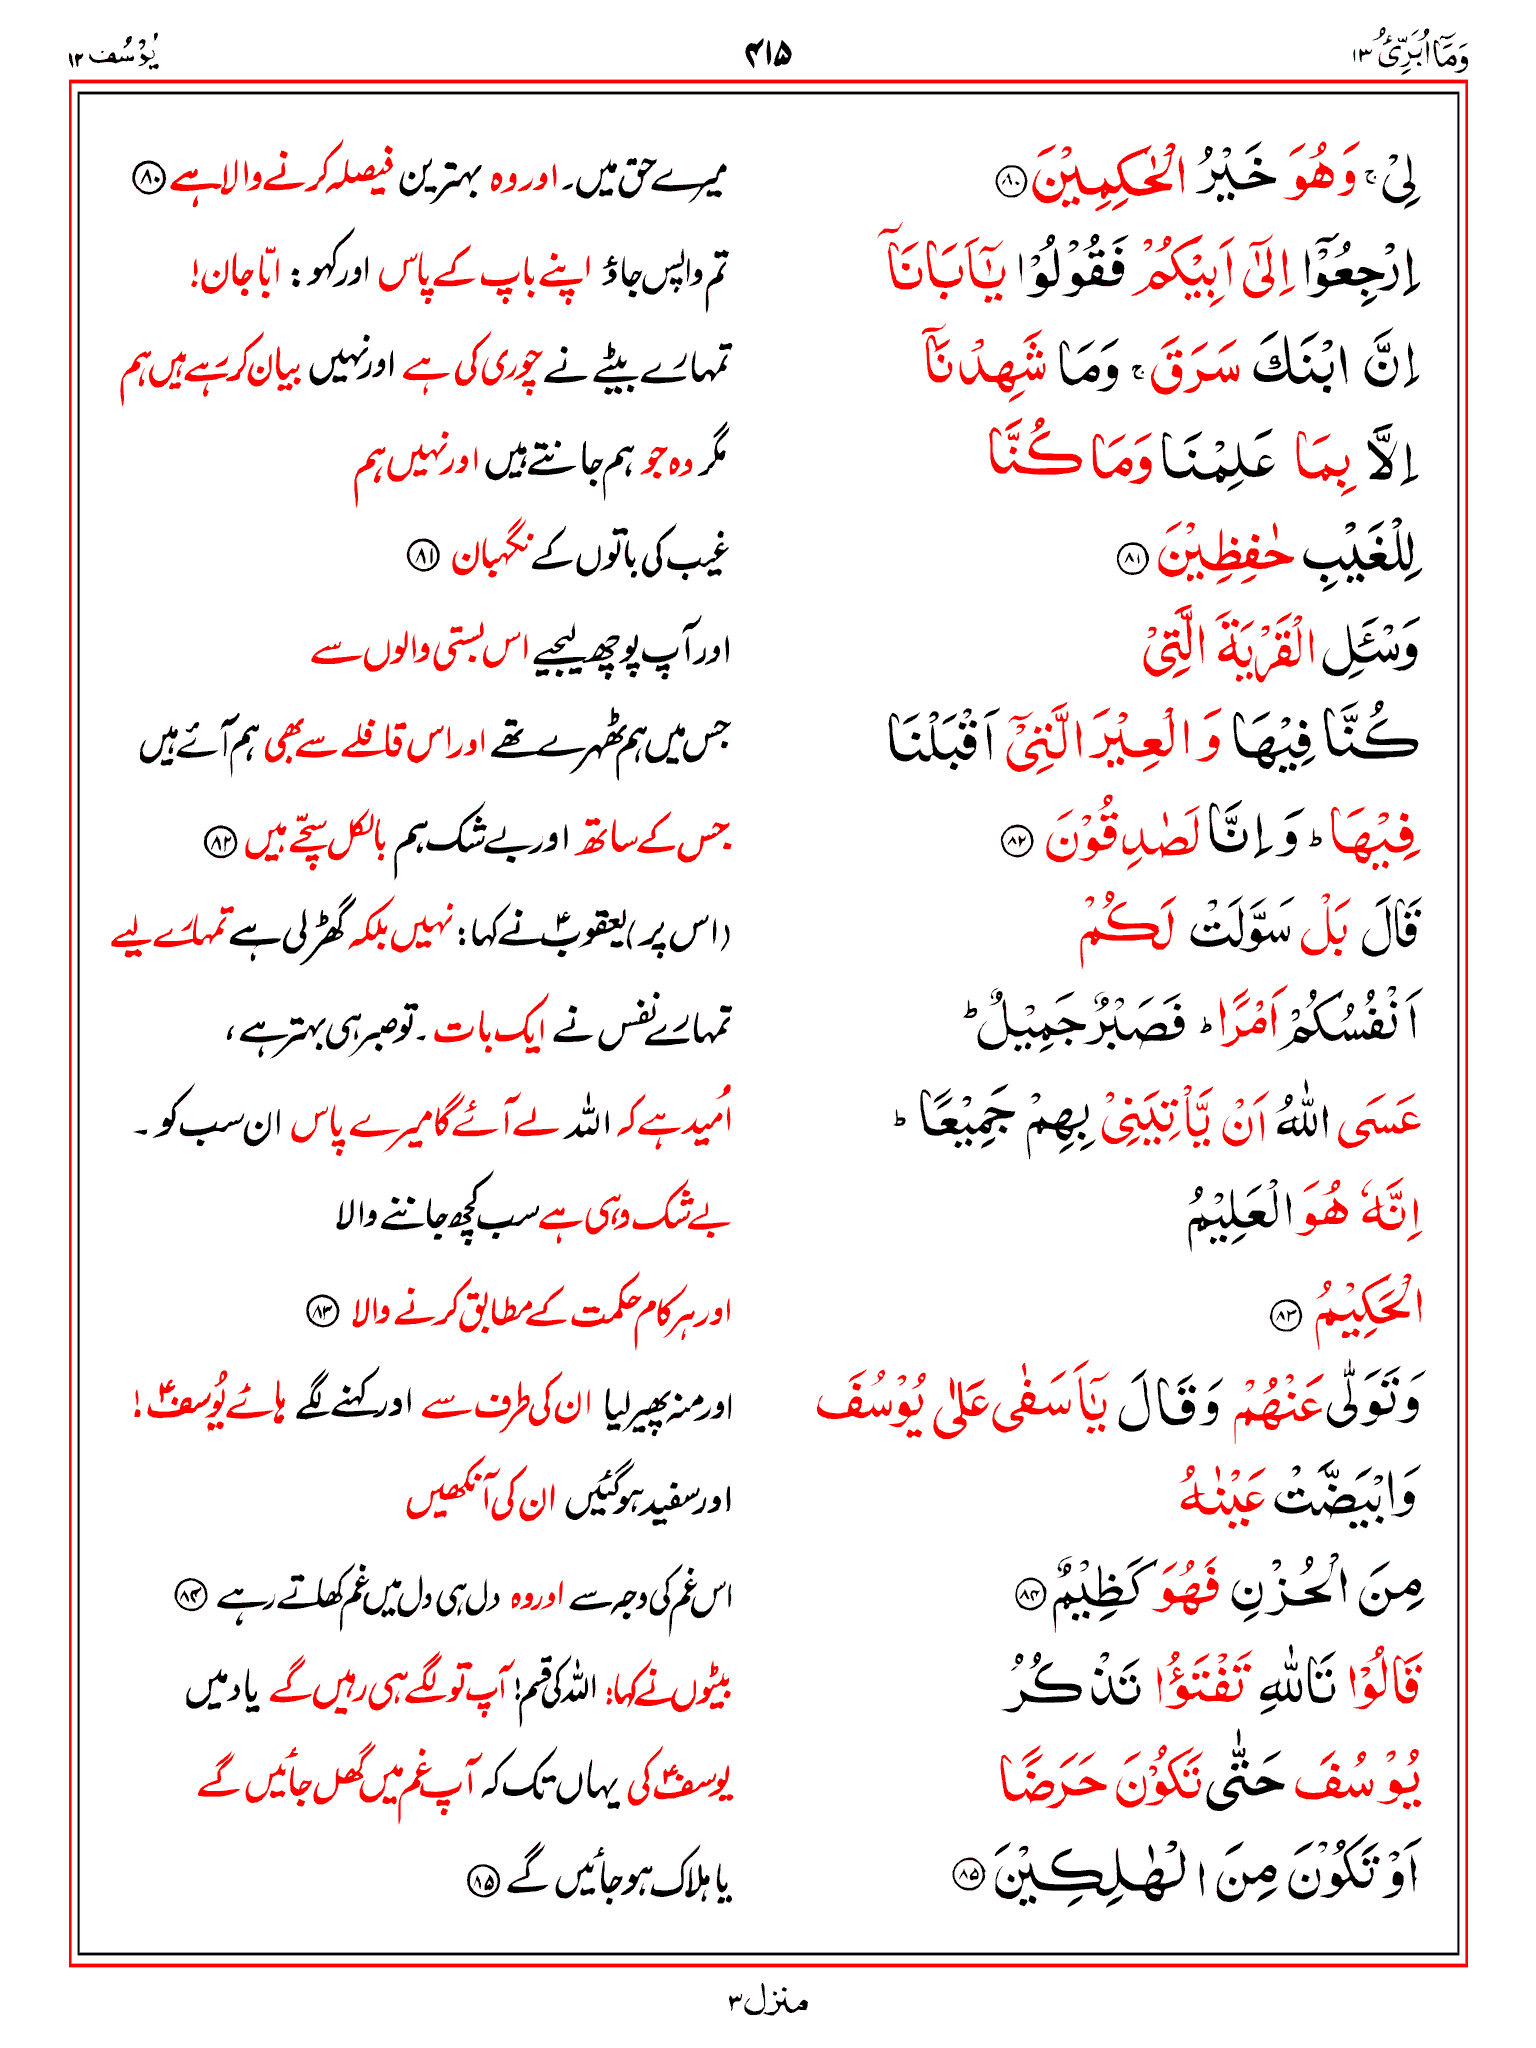 وَمَآ اُبَرِّئُ ۱۳
۴۱۵
یُوْسُف ۱۲
لِیْ ۚ وَهُوَ خَیْرُ الْحٰكِمِیْنَ ۝۸۰
میرے حق میں۔ اور وہ بہترین فیصلہ کرنے والا ہے ۝۸۰
اِرْجِعُوْۤا اِلٰۤی اَبِیْكُمْ فَقُوْلُوْا یٰۤاَبَانَاۤ
تم واپس جاؤ اپنے باپ کے پاس اور کہو: ابّا جان!
اِنَّ ابْنَكَ سَرَقَ ۚ وَمَا شَهِدْنَاۤ
تمہارے بیٹے نے چوری کی ہے اور نہیں بیان کر رہے ہیں ہم
اِلَّا بِمَا عَلِمْنَا وَمَا كُنَّا
مگر وہ جو ہم جانتے ہیں اور نہیں ہم
لِلْغَیْبِ حٰفِظِیْنَ ۝۸۱
غیب کی باتوں کے نگہبان ۝۸۱
وَسْئَلِ الْقَرْیَةَ الَّتِیْ
اور آپ پوچھ لیجیے اس بستی والوں سے
كُنَّا فِیْهَا وَالْعِیْرَ الَّتِیْۤ اَقْبَلْنَا
جس میں ہم ٹھہرے تھے اور اس قافلے سے بھی ہم آئے ہیں
فِیْهَا ؕ وَاِنَّا لَصٰدِقُوْنَ ۝۸۲
جس کے ساتھ اور بے شک ہم بالکل سچّے ہیں ۝۸۲
قَالَ بَلْ سَوَّلَتْ لَكُمْ
(اس پر) یعقوبؑ نے کہا: نہیں بلکہ گھڑ لی ہے تمہارے لیے
اَنْفُسُكُمْ اَمْرًا ؕ فَصَبْرٌ جَمِیْلٌ ؕ
تمہارے نفس نے ایک بات۔ تو صبر ہی بہتر ہے،
عَسَی اللّٰهُ اَنْ یَّاْتِیَنِیْ بِهِمْ جَمِیْعًا ؕ
اُمید ہے کہ اللہ لے آئے گا میرے پاس ان سب کو۔
اِنَّهٗ هُوَ الْعَلِیْمُ
بے شک وہی ہے سب کچھ جاننے والا
الْحَكِیْمُ ۝۸۳
اور ہر کام حکمت کے مطابق کرنے والا ۝۸۳
وَتَوَلّٰی عَنْهُمْ وَقَالَ یٰۤاَسَفٰی عَلٰی یُوْسُفَ
اور منہ پھیر لیا ان کی طرف سے اور کہنے لگے ہائے یُوسفؑ!
وَابْیَضَّتْ عَیْنٰهُ
اور سفید ہو گئیں ان کی آنکھیں
مِنَ الْحُزْنِ فَهُوَ كَظِیْمٌ ۝۸۴
اس غم کی وجہ سے اور وہ دل ہی دل میں غم کھاتے رہے ۝۸۴
قَالُوْا تَاللّٰهِ تَفْتَؤُا تَذْكُرُ
بیٹوں نے کہا: اللہ کی قسم! آپ تو لگے ہی رہیں گے یاد میں
یُوْسُفَ حَتّٰی تَكُوْنَ حَرَضًا
یوسفؑ کی یہاں تک کہ آپ غم میں گھل جائیں گے
اَوْ تَكُوْنَ مِنَ الْهٰلِكِیْنَ ۝۸۵
یا ہلاک ہو جائیں گے ۝۸۵
منزل ۳